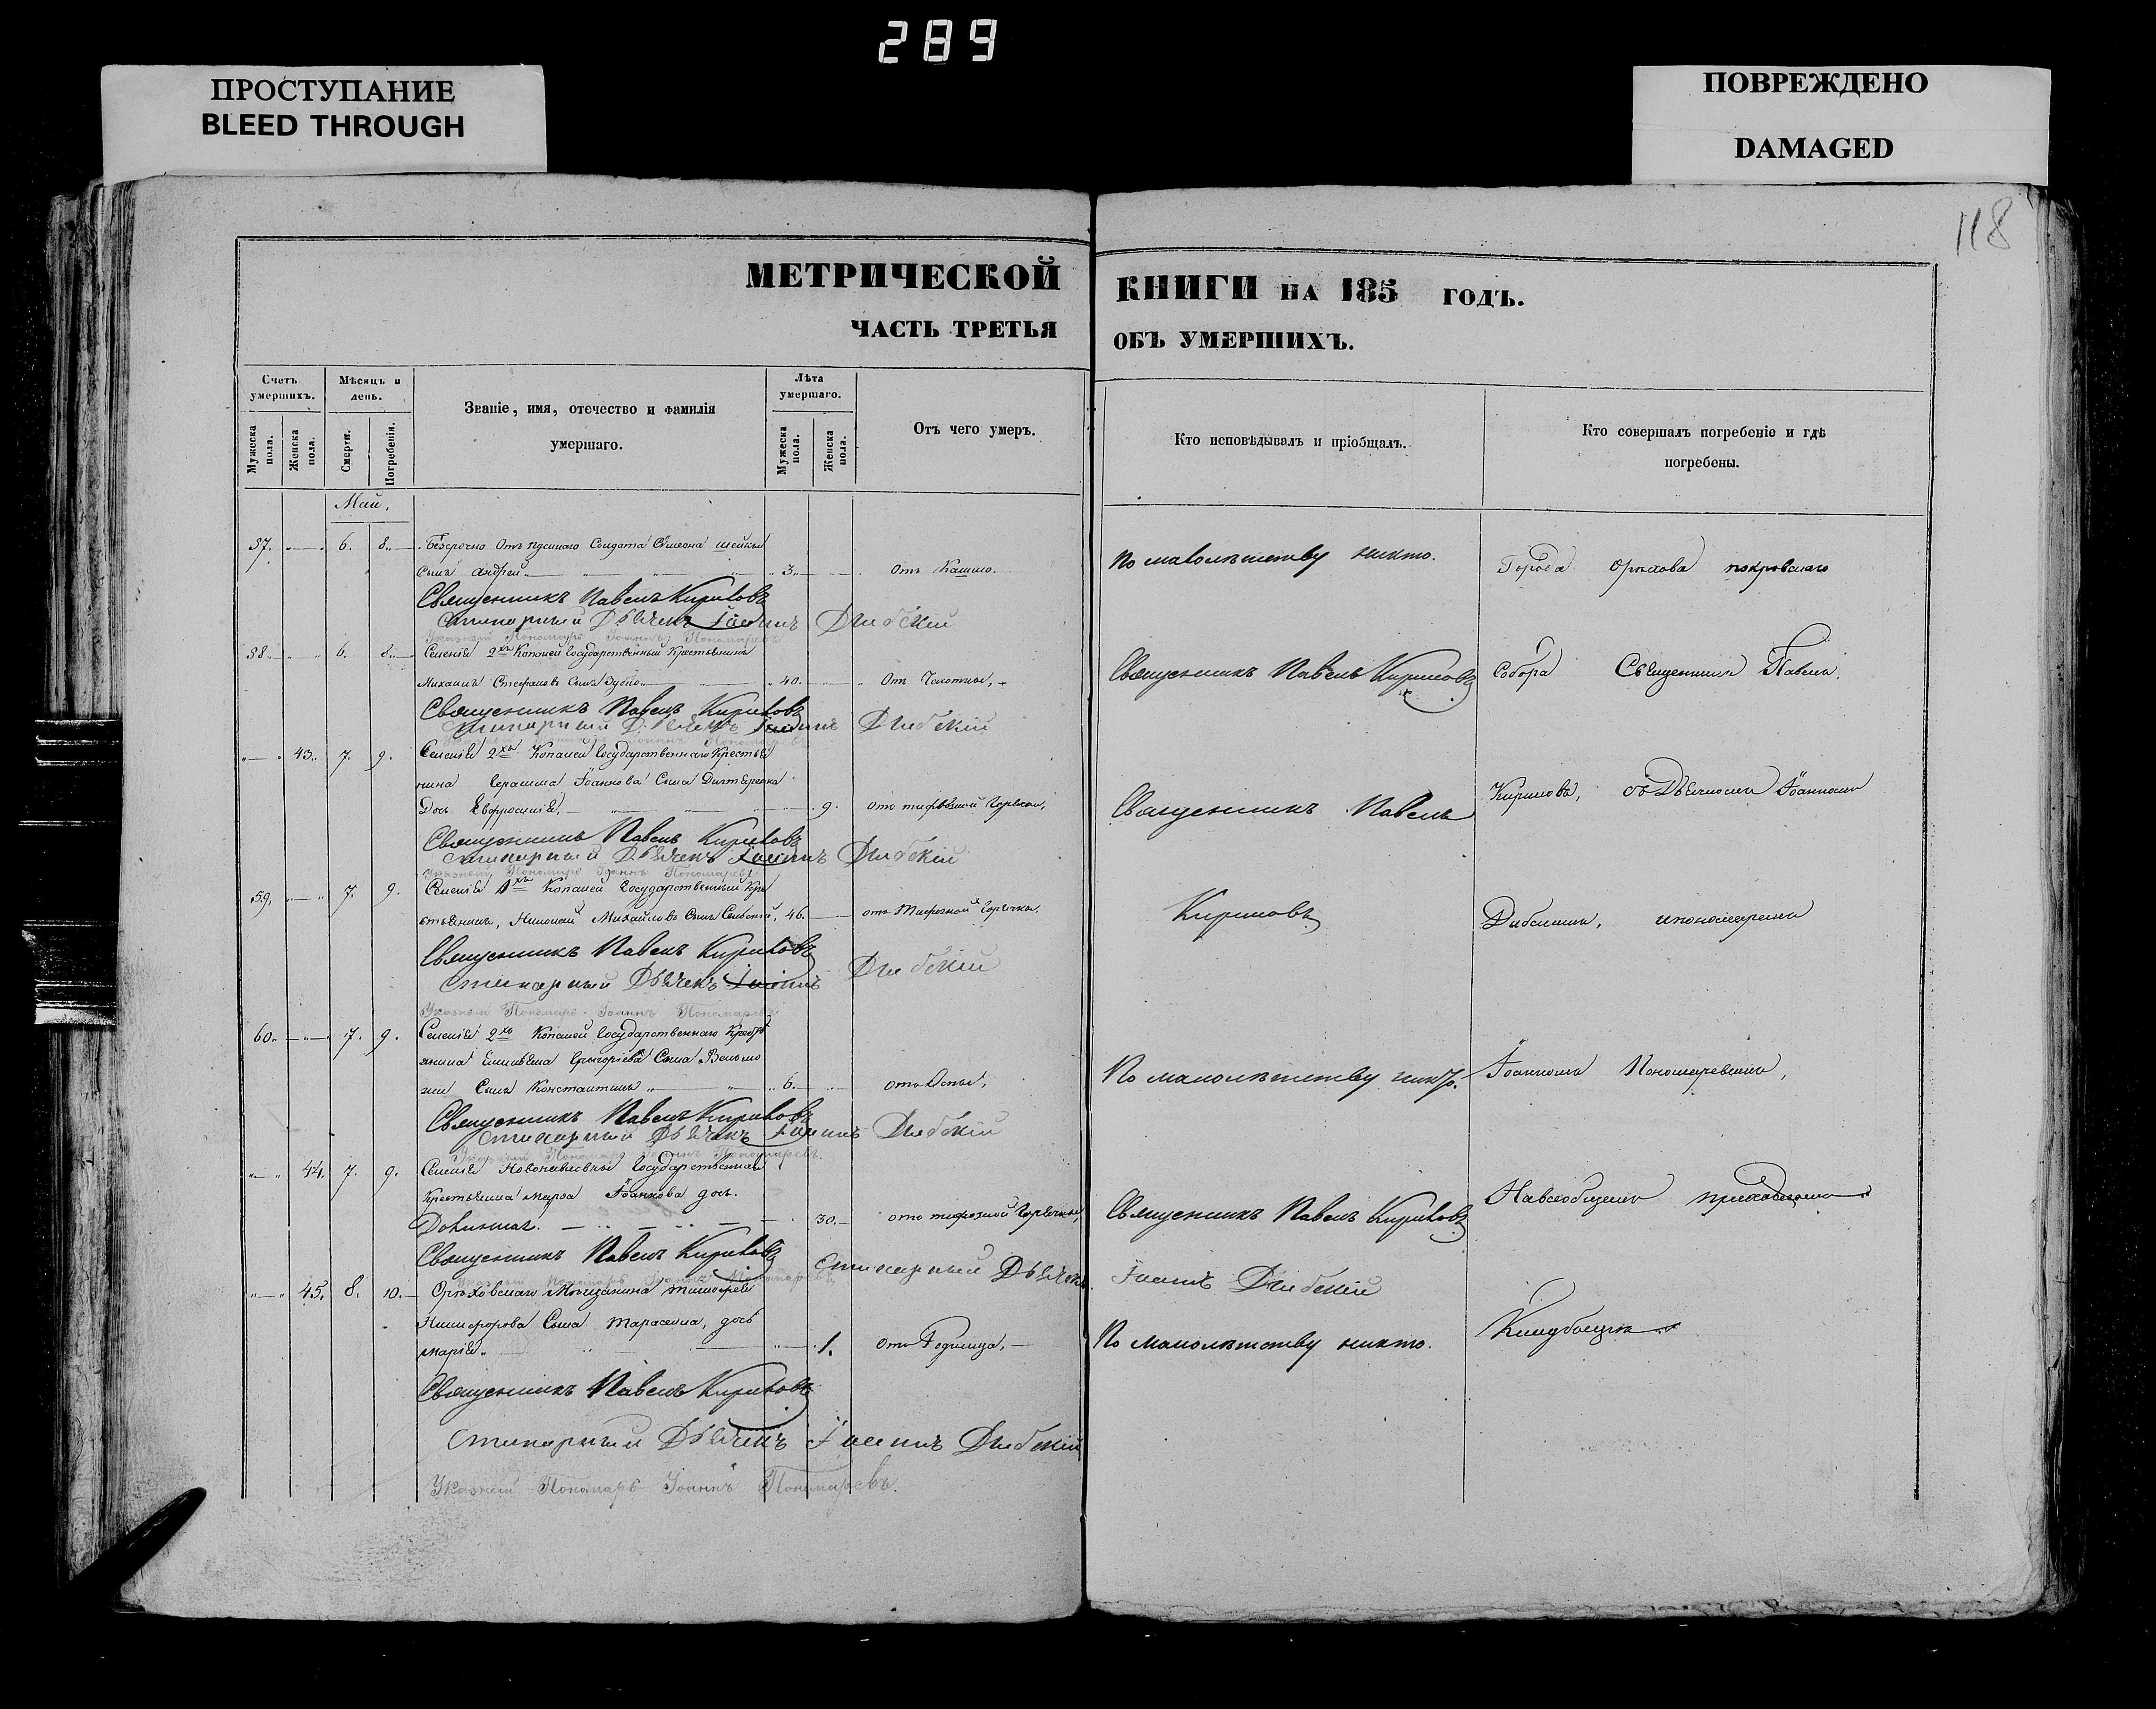 289
ПРОСТУПАНИЕ
BLEED THROUGH
ПОВРЕЖДЕНО
DAMAGED
118
МЕТРИЧЕСКОЙ КНИГИ НА 185 ГОДЪ.
ЧАСТЬ ТРЕТЬЯ ОБЪ УМЕРШИХЪ.
Счетъ умершихъ.
Мужеска пола.
Женска пола.
Мѣсяцъ и день.
Смерти.
Погребенія.
Званіе, имя, отечество и фамилія
умершаго.
Лѣта умершаго.
Мужеска пола.
Женска пола.
Отъ чего умеръ.
Кто исповѣдывалъ и пріобщалъ.
Кто совершалъ погребеніе и гдѣ
погребены.
Май,
37. 6. 8. Безсрочно Отъпуснаго Солдата Симеона
сынъ Андрей 3. Отъ Кашлю. По малолѣтству никто. Города Орѣхова покровскаго
Священникъ Павелъ Кириловъ
Стихарный Дьячекъ Іоаннъ Дибскій
Указный Пономарь Іоаннъ Пономаревъ
38. 6. 8. Селенія 2хъ Копаней Государственный Крестьянинъ
Михаилъ Стефановъ Сынъ 40. Отъ Чахотки, Священникъ Павелъ Кириловъ Собора Священникъ Павелъ
Священникъ Павелъ Кириловъ
Стихарный Дьячекъ Іоаннъ Дибскій
43. 7. 9. Селенія 2хъ Копаней Государственнаго Крестья
нина Герасима Іоаннова Сына
Дочь Евфросинія, 9. отъ Горячки, Священникъ Павелъ Кириловъ, съ Дьячкомъ Іоанномъ
Священникъ Павелъ Кириловъ
Стихарный Дьячекъ Іоаннъ Дибскій
Указный Пономарь Іоаннъ Пономаревъ
59. 7. 9. Селенія Копаней Государственный Кре
стьянинъ, Николай Михайловъ Сынъ 46. отъ Горячки. Кириловъ Дибскимъ, ипономаремъ
Священникъ Павелъ Кириловъ
Стихарный Дьячекъ Іоаннъ Дибскій
Указный Пономарь Іоаннъ Пономаревъ
60. 7. 9. Селенія 2хъ Копаней Государственнаго Кресть
янина Григоріева Сына
Сынъ Константинъ 6. отъ Оспы, По малолѣтству никто. Іоанномъ Пономаревымъ,
Священникъ Павелъ Кириловъ
Стихарный Дьячекъ Іоаннъ Дибскій
Указный Пономарь Іоаннъ Пономаревъ
44. 7. 9. Селенія Новопавловки Государственная
Крестьянка Іоаннова дочь.
30. отъ Горячки, Священникъ Павелъ Кириловъ Навсеобщемъ приходскомъ
Священникъ Павелъ Кириловъ Стихарный Дьячекъ Іоаннъ Дибскій
Указный Пономарь Іоаннъ Пономаревъ
45. 8. 10. Орѣховскаго Мѣщанина Тимофея
Никифорова Сына Тарасенка, дочь
Марія. 1. отъ Родимца, По малолѣтству никто. Кладбищѣ
Священникъ Павелъ Кириловъ
Стихарный Дьячекъ Іоаннъ Дибскій
Указный Пономарь Іоаннъ Пономаревъ.